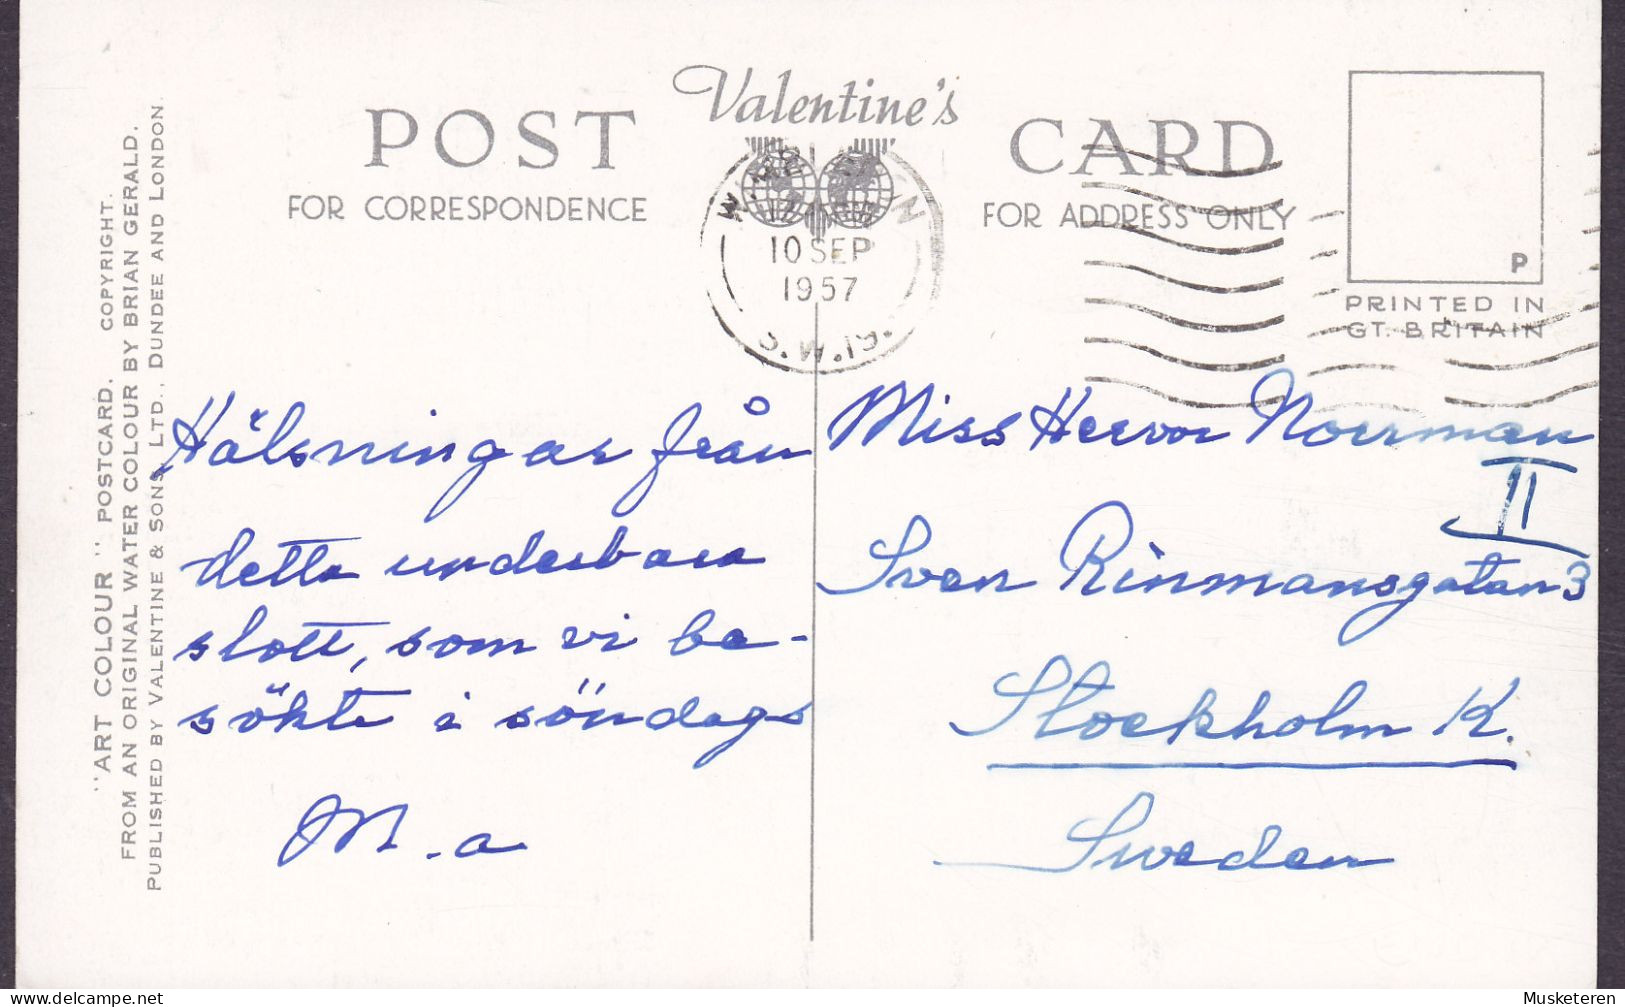 Valentine's
POST CARD
FOR CORRESPONDENCE
FOR ADDRESS ONLY
10 SEP
1957
S.W.19.
P
PRINTED IN
GT. BRITAIN
"ART COLOUR" POSTCARD. COPYRIGHT.
FROM AN ORIGINAL WATER COLOUR BY BRIAN GERALD.
PUBLISHED BY VALENTINE & SONS, LTD., DUNDEE AND LONDON.
Hälsningar från
detta underbara
slott, som vi be-
sökte i söndags
M.a
Miss Hervor Norrman
II
Sven Rinmansgatan 3
Stockholm K.
Sweden
Musketeren